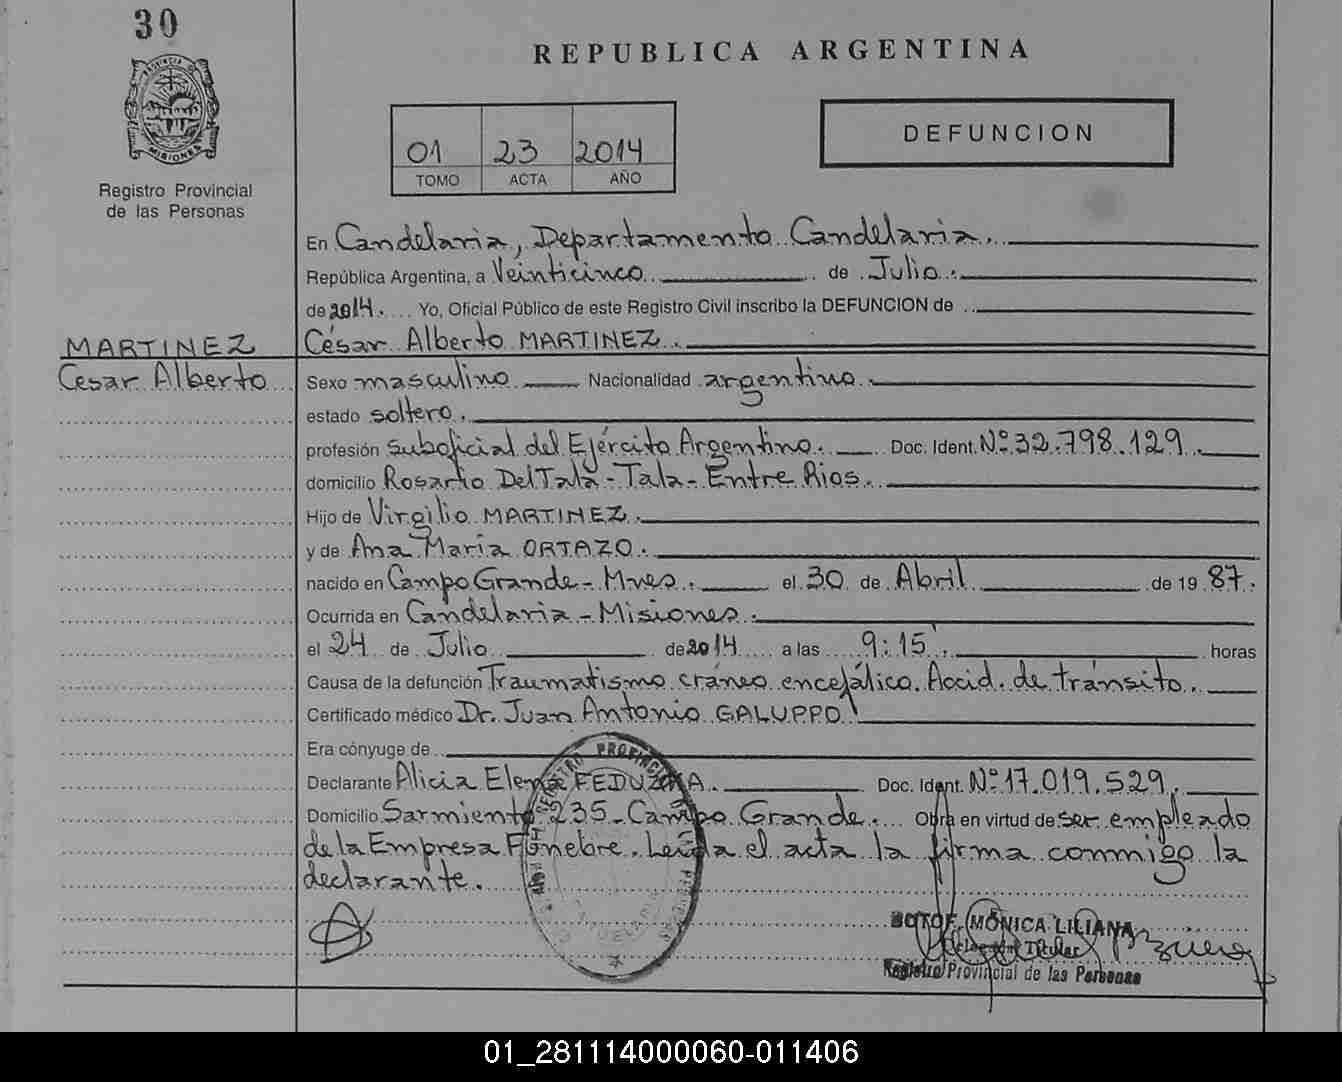 30
PROVINCIA
MISIONES
Registro Provincial
de las Personas
REPUBLICA ARGENTINA
01 23 2014
TOMO ACTA AÑO
DEFUNCION
En Candelaria, Departamento Candelaria.
República Argentina, a Veinticinco de Julio.
de 2014. Yo, Oficial Público de este Registro Civil inscribo la DEFUNCION de
MARTINEZ
César Alberto MARTINEZ.
Cesar Alberto
Sexo masculino Nacionalidad argentino.
estado soltero.
profesión Suboficial del Ejército Argentino. Doc. Ident. Nº 32.798.129.
domicilio Rosario Del Tala - Tala - Entre Rios.
Hijo de Virgilio MARTINEZ.
y de Ana Maria ORTAZO.
nacido en Campo Grande - Mnes. el 30 de Abril de 19 87.
Ocurrida en Candelaria - Misiones.
el 24 de Julio de 2014 a las 9:15. horas
Causa de la defunción Traumatismo cráneo encefálico. Accid. de tránsito.
Certificado médico Dr. Juan Antonio GALUPPO
Era cónyuge de
Declarante Alicia Elena Doc. Ident. Nº 17.019.529.
Domicilio Sarmiento 235 - Campo Grande. Obra en virtud de ser empleado
de la Empresa Fúnebre. Leída el acta la firma conmigo la
declarante.
REGISTRO PROVINCIAL DE LAS PERSONAS
CANDELARIA
BOTOF MÓNICA LILIANA
Titular
Registro Provincial de las Personas
01_281114000060-011406